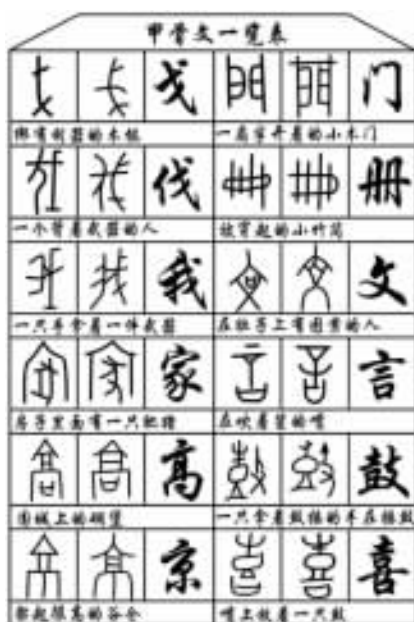 甲骨文一览表
戈 门
绑有利器的木棍 一扇常开着的小木门
伐 册
一个背着武器的人 被穿起的小竹简
我 文
一只手拿着一件武器 在肚子上有图案的人
家 言
房子里面有一只肥猪 在吹着竖的嘴
高 鼓
围城上的碉堡 一只拿着鼓槌的手在槌鼓
京 喜
都起很高的谷仓 嘴上放着一只鼓